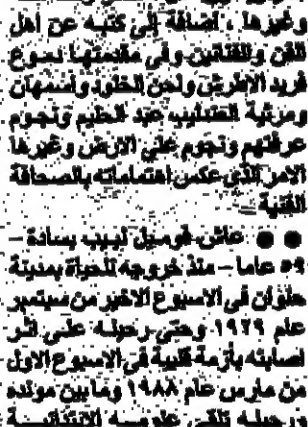 وغيرها ، اضافة إلى كتبه عن أهل
الفن والفنانين وفي مقدمتها دموع
فريد الاطرش ولحن الخلود وأسمهان
ومرثية العندليب عبد الحليم ونجوم
عرفتهم ونجوم على الارض وغيرها
الامر الذي عكس اهتماماته بالصحافة
الفنية –
●● عاش فوميل لبيب بسادة –
٥٩ عاما – منذ خروجه للحياة بمدينة
حلوان في الاسبوع الاخير من سبتمبر
عام ١٩٢٩ وحتى رحيله على اثر
اصابته بأزمة قلبية في الاسبوع الاول
من مارس عام ١٩٨٨ وما بين مولده
ورحيله تلقى علومه الابتدائية